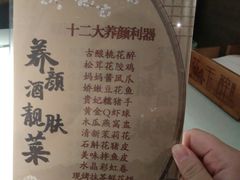 十二大养颜利器
养颜酒
靓肤菜
古酿桃花醉
松茸花胶鸡
妈妈酱凤爪
娇嫩豆花鱼
贵妃糯猪手
黄金Q虾球
木瓜燕窝盅
清新茉莉花
石斛花猪皮
美味拌鱼皮
水晶彩虹卷